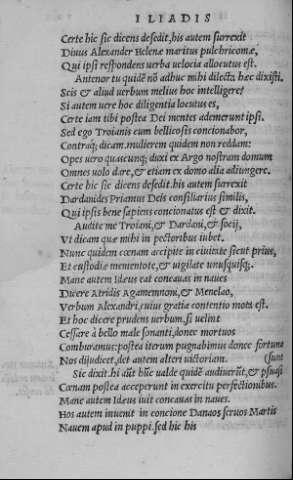 ILIADIS
Certe hic sic dicens desedit, his autem surrexit
Divus Alexander Helenæ maritus pulchricomæ,
Qui ipsi respondens uerba uelocia allocutus est.
Antenor tu quidẽ nõ adhuc mihi dilecta hæc dixisti.
Scis & aliud uerbum melius hoc intelligere?
Si autem uere hoc diligentia locutus es,
Certe iam tibi postea Dei mentes ademerunt ipsi.
Sed ego Troianis cum bellicosis concionabor,
Contraq; dicam. mulierem quidem non reddam:
Opes uero quascunq; duxi ex Argo nostram domum
Omnes uolo dare, & etiam ex domo alia adiungere.
Certe hic sic dicens desedit. his autem surrexit
Dardanides Priamus Deis consiliarius similis,
Qui ipsis bene sapiens concionatus est & dixit.
Audite me Troiani, & Dardani, & socij,
Vt dicam quæ mihi in pectoribus iubet.
Nunc quidem cœnam accipite in ciuitate sicut prius,
Et custodiæ mementote, & uigilate unusquisq;.
Mane autem Ideus eat concauas in naues
Dicere Atridis Agamemnoni, & Menelao,
Verbum Alexandri, cuius gratia contentio mota est.
Et hoc dicere prudens uerbum, si uelint
Cessare à bello male sonanti, donec mortuos
Comburamus: postea iterum pugnabimus donec fortuna
Nos dijudicet, det autem alteri uictoriam. (sunt
Sic dixit. hi aũt hũc ualde quidẽ audiuerũt, & ꝑsuasi
Cœnam postea acceperunt in exercitu perfectionibus.
Mane autem Ideus iuit concauas in naues.
Hos autem inuenit in concione Danaos seruos Martis
Nauem apud in puppi. sed hic his